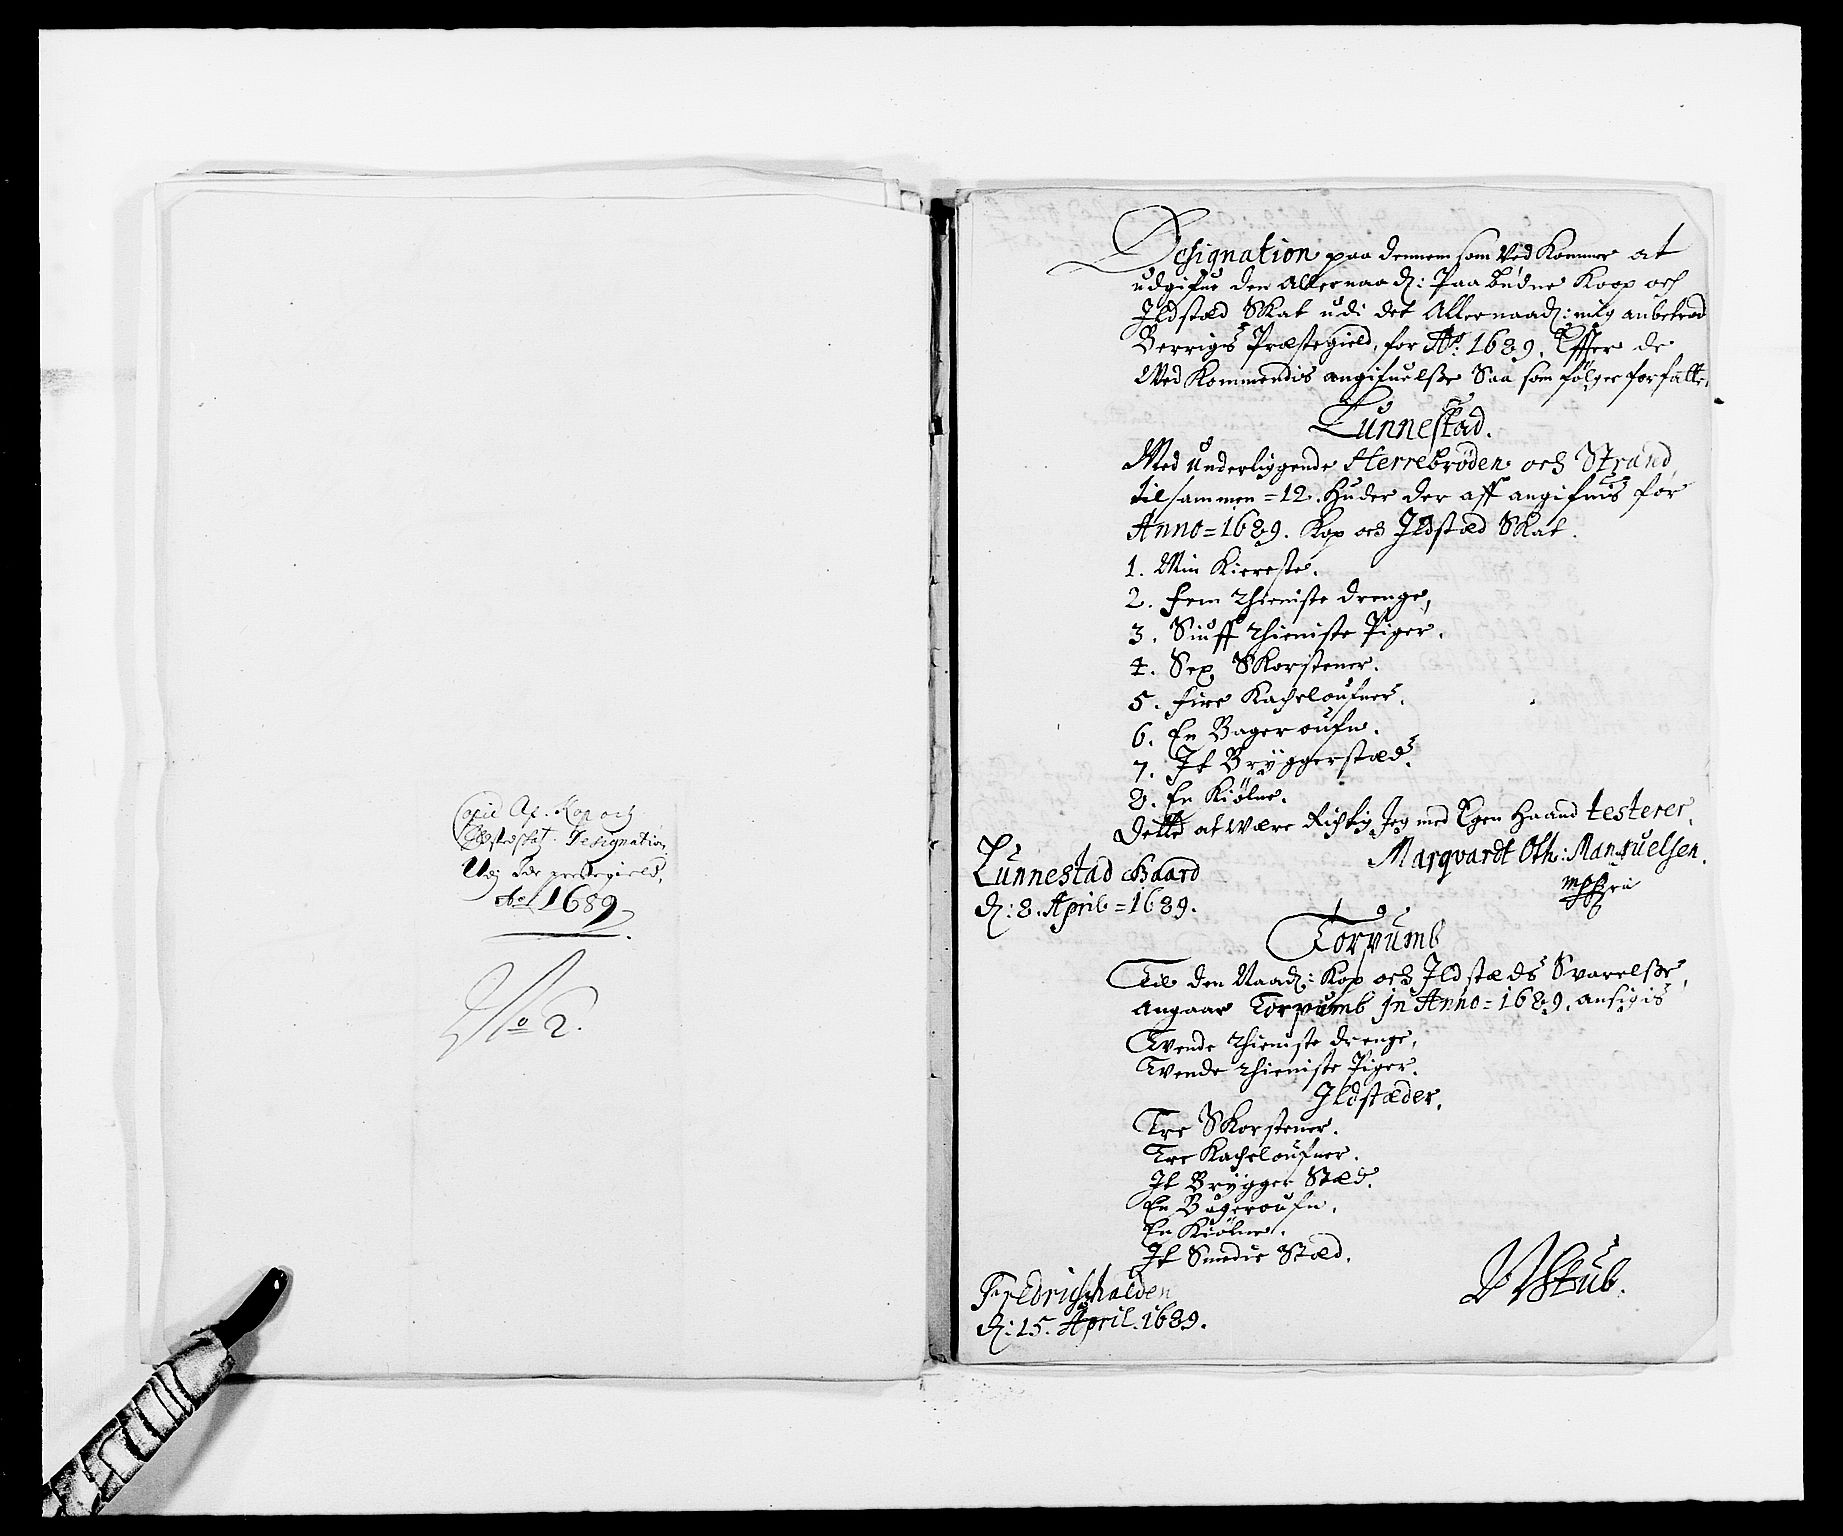 Copie Af Kop och
Ildstedskat Designation
Udj Ide prestegield,
Ao 1689
No 2.
Designation paa dennem som Ved Kommer at
udgifue den Allernaad: Paabudne Koop och
Ildstæd Skat udi det Allernaad: mig anbetrod
Berrigs Præstegield, for Ao. 1689. Effter de
Ved Kommendis angifuelsse Saa som følger forfatte,
Tunnestad.
Med underliggende Herrebrøden och Strand,
til sammen = 12. Huder der aff angifuis for
Anno = 1689. Kop och Ildstæd Skat.
1. Min Kiereste.
2. Fem thieniste drenge,
3. Siuff thieniste Piger.
4. Sex Skorstener.
5. Fire Kacheloufner.
6. En Bageroufn.
7. It Bryggerstæd.
8. En Kiølne.
Dette at Være Richtig Jeg med Egen Haand testerer.
Tunnestad Gaard
d: 8. April = 1689.
Marqvardt Oth: Manuelsen.
mppria
Torpumb
Til den Naad: Kop och Ildstæds Svarelsse,
Angaar Torpumb in Anno = 1689. angigis
Tvende thieniste drenge,
Tvende thieniste Piger.
Ildstæder.
Tre Skorstener.
Tre Kacheloufner.
It Brygger Stæd.
En Bageroufn.
En Kiølne.
It Smedie Stæd.
Fredrichshalden
d: 15. April. 1689.
Stub.